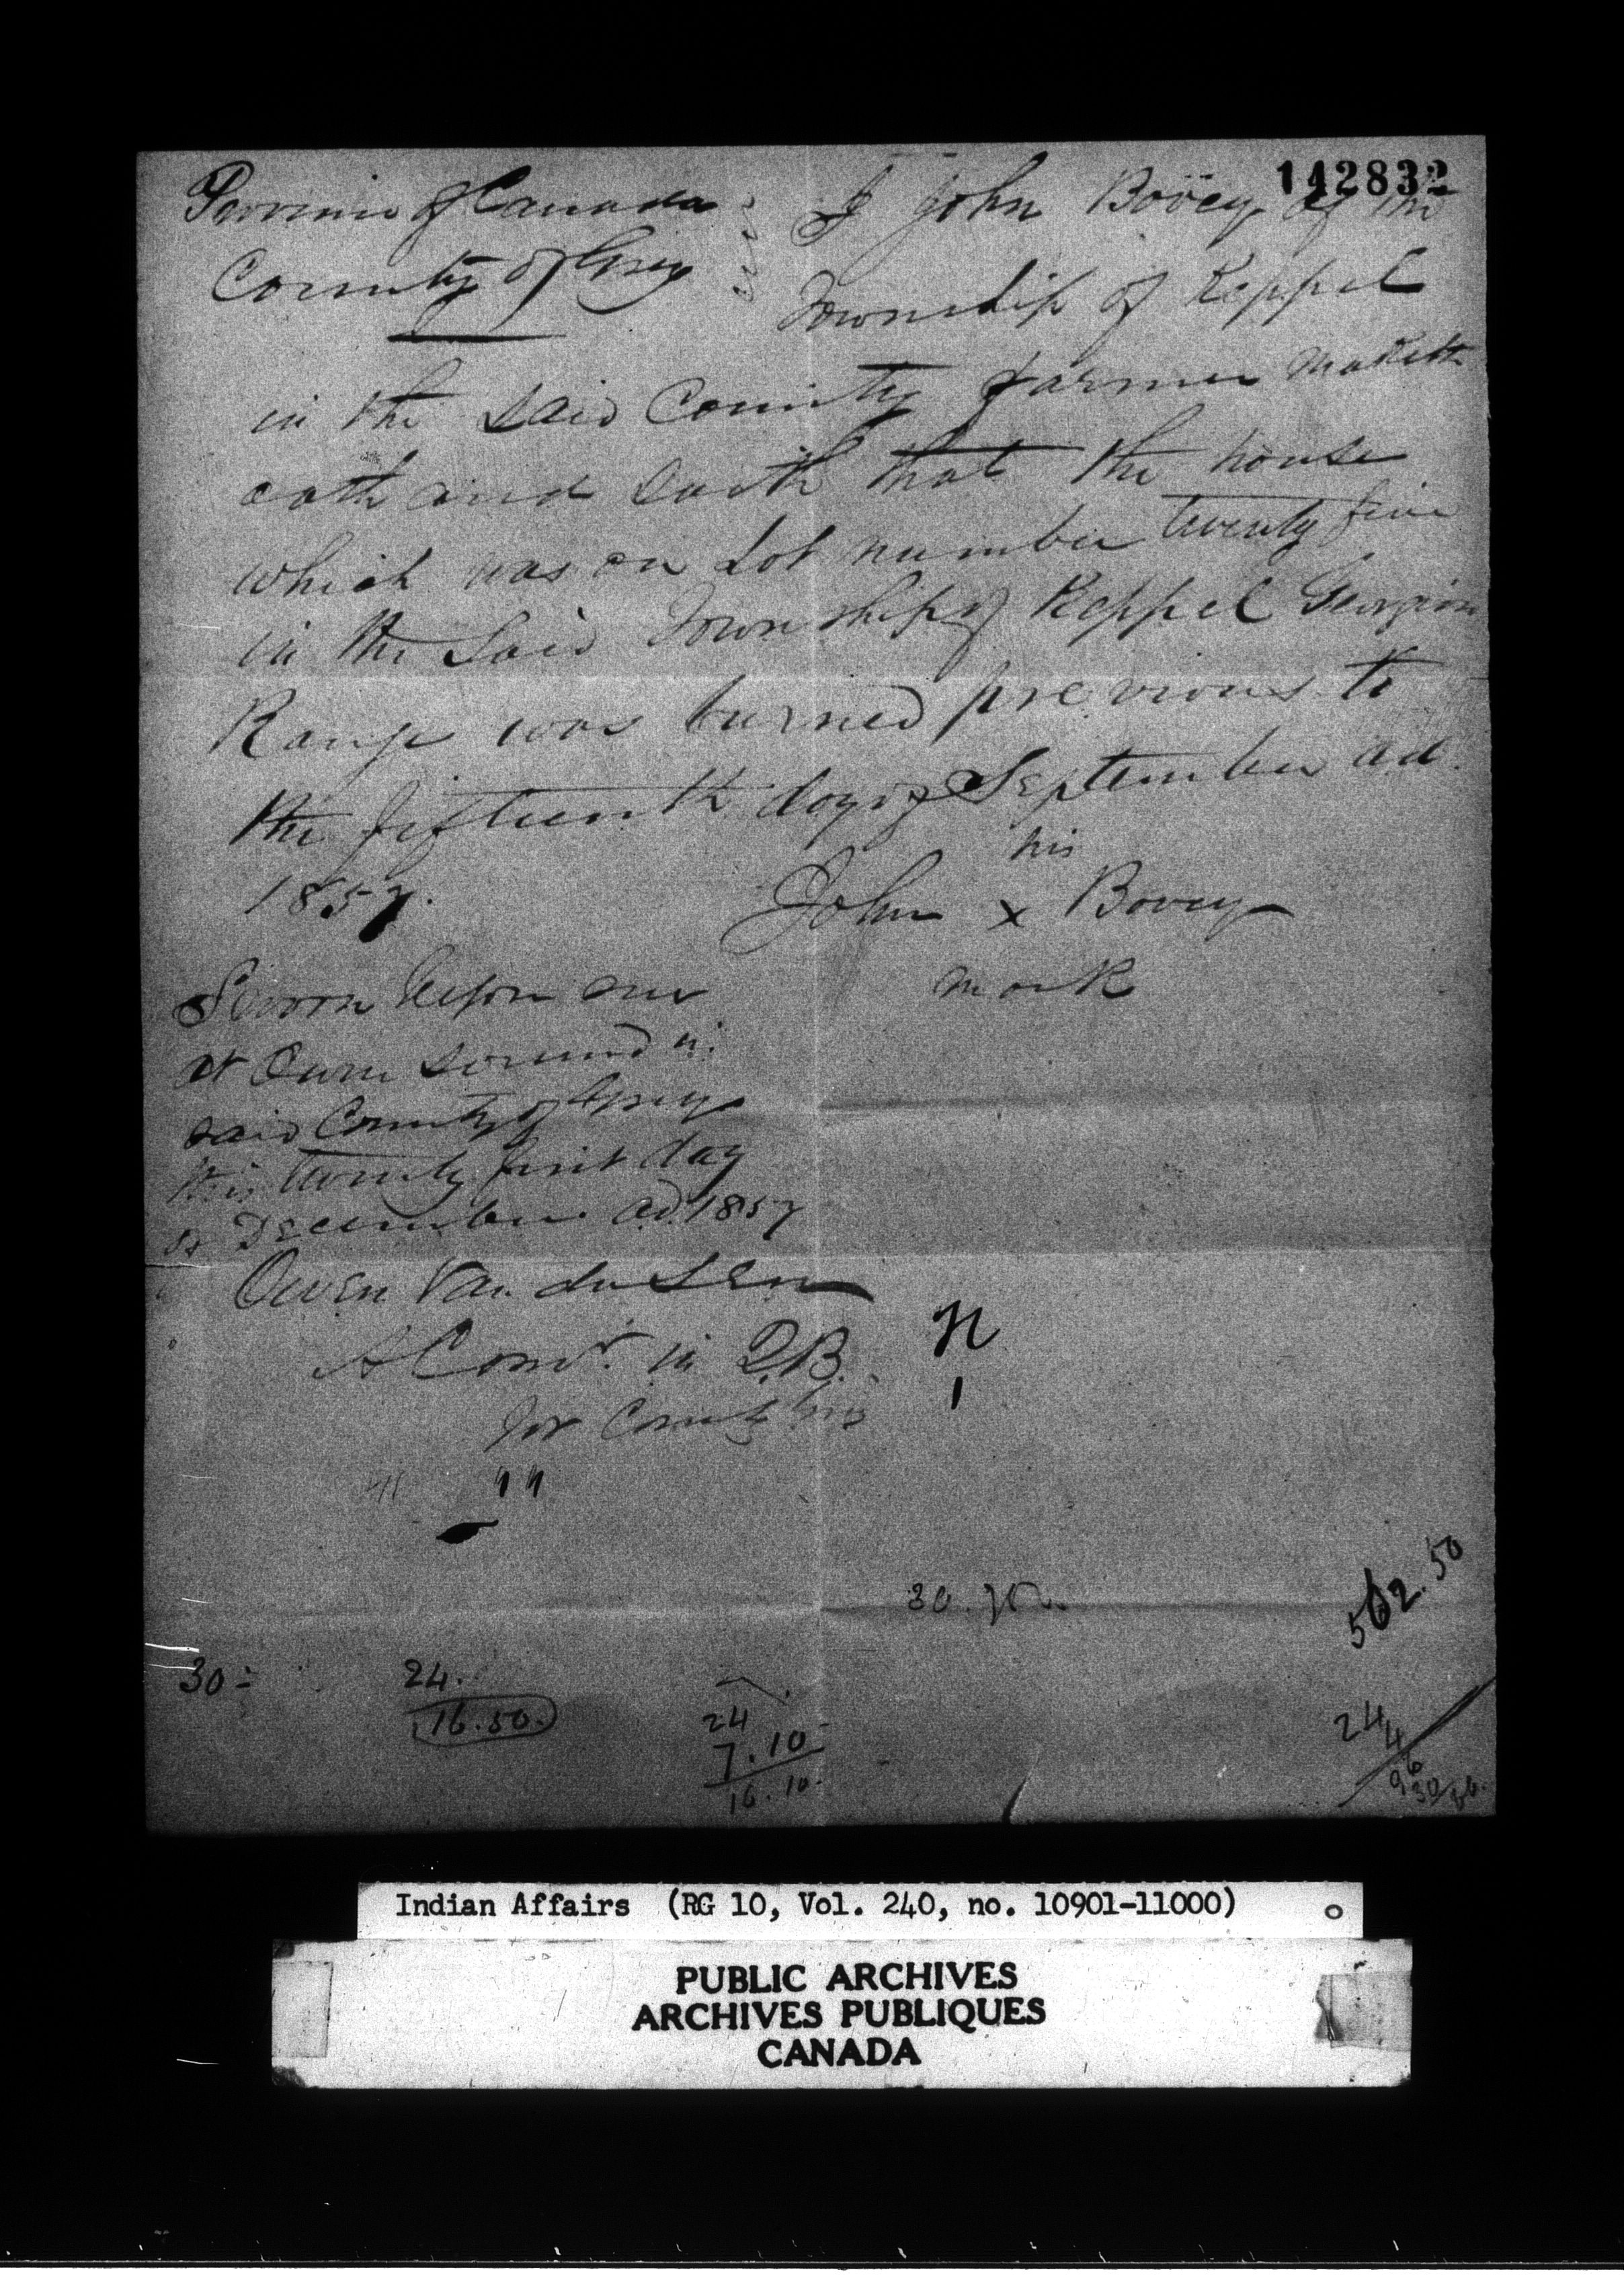 142832
Province of Canada
County of Grey
I John Bovey of the
Township of Keppel
in the said County farmer maketh
oath and saith that the house
which was on Lot number twenty five
in the said Township of Keppel Georgian
Range was burned previous to
the fifteenth day of September ad.
1857.
his
John x Bovey
mark
Sworn before me
at Owen Sound in
said County of Grey
this twenty first day
of December ad. 1857
Owen Van dusen
A Comr. in Q.B.
for County Grey
" "
562.50
30
24.
16.50.
24
7.10
16.10.
24
4
96
30
Indian Affairs (RG 10, Vol. 240, no. 10901-11000)
PUBLIC ARCHIVES
ARCHIVES PUBLIQUES
CANADA